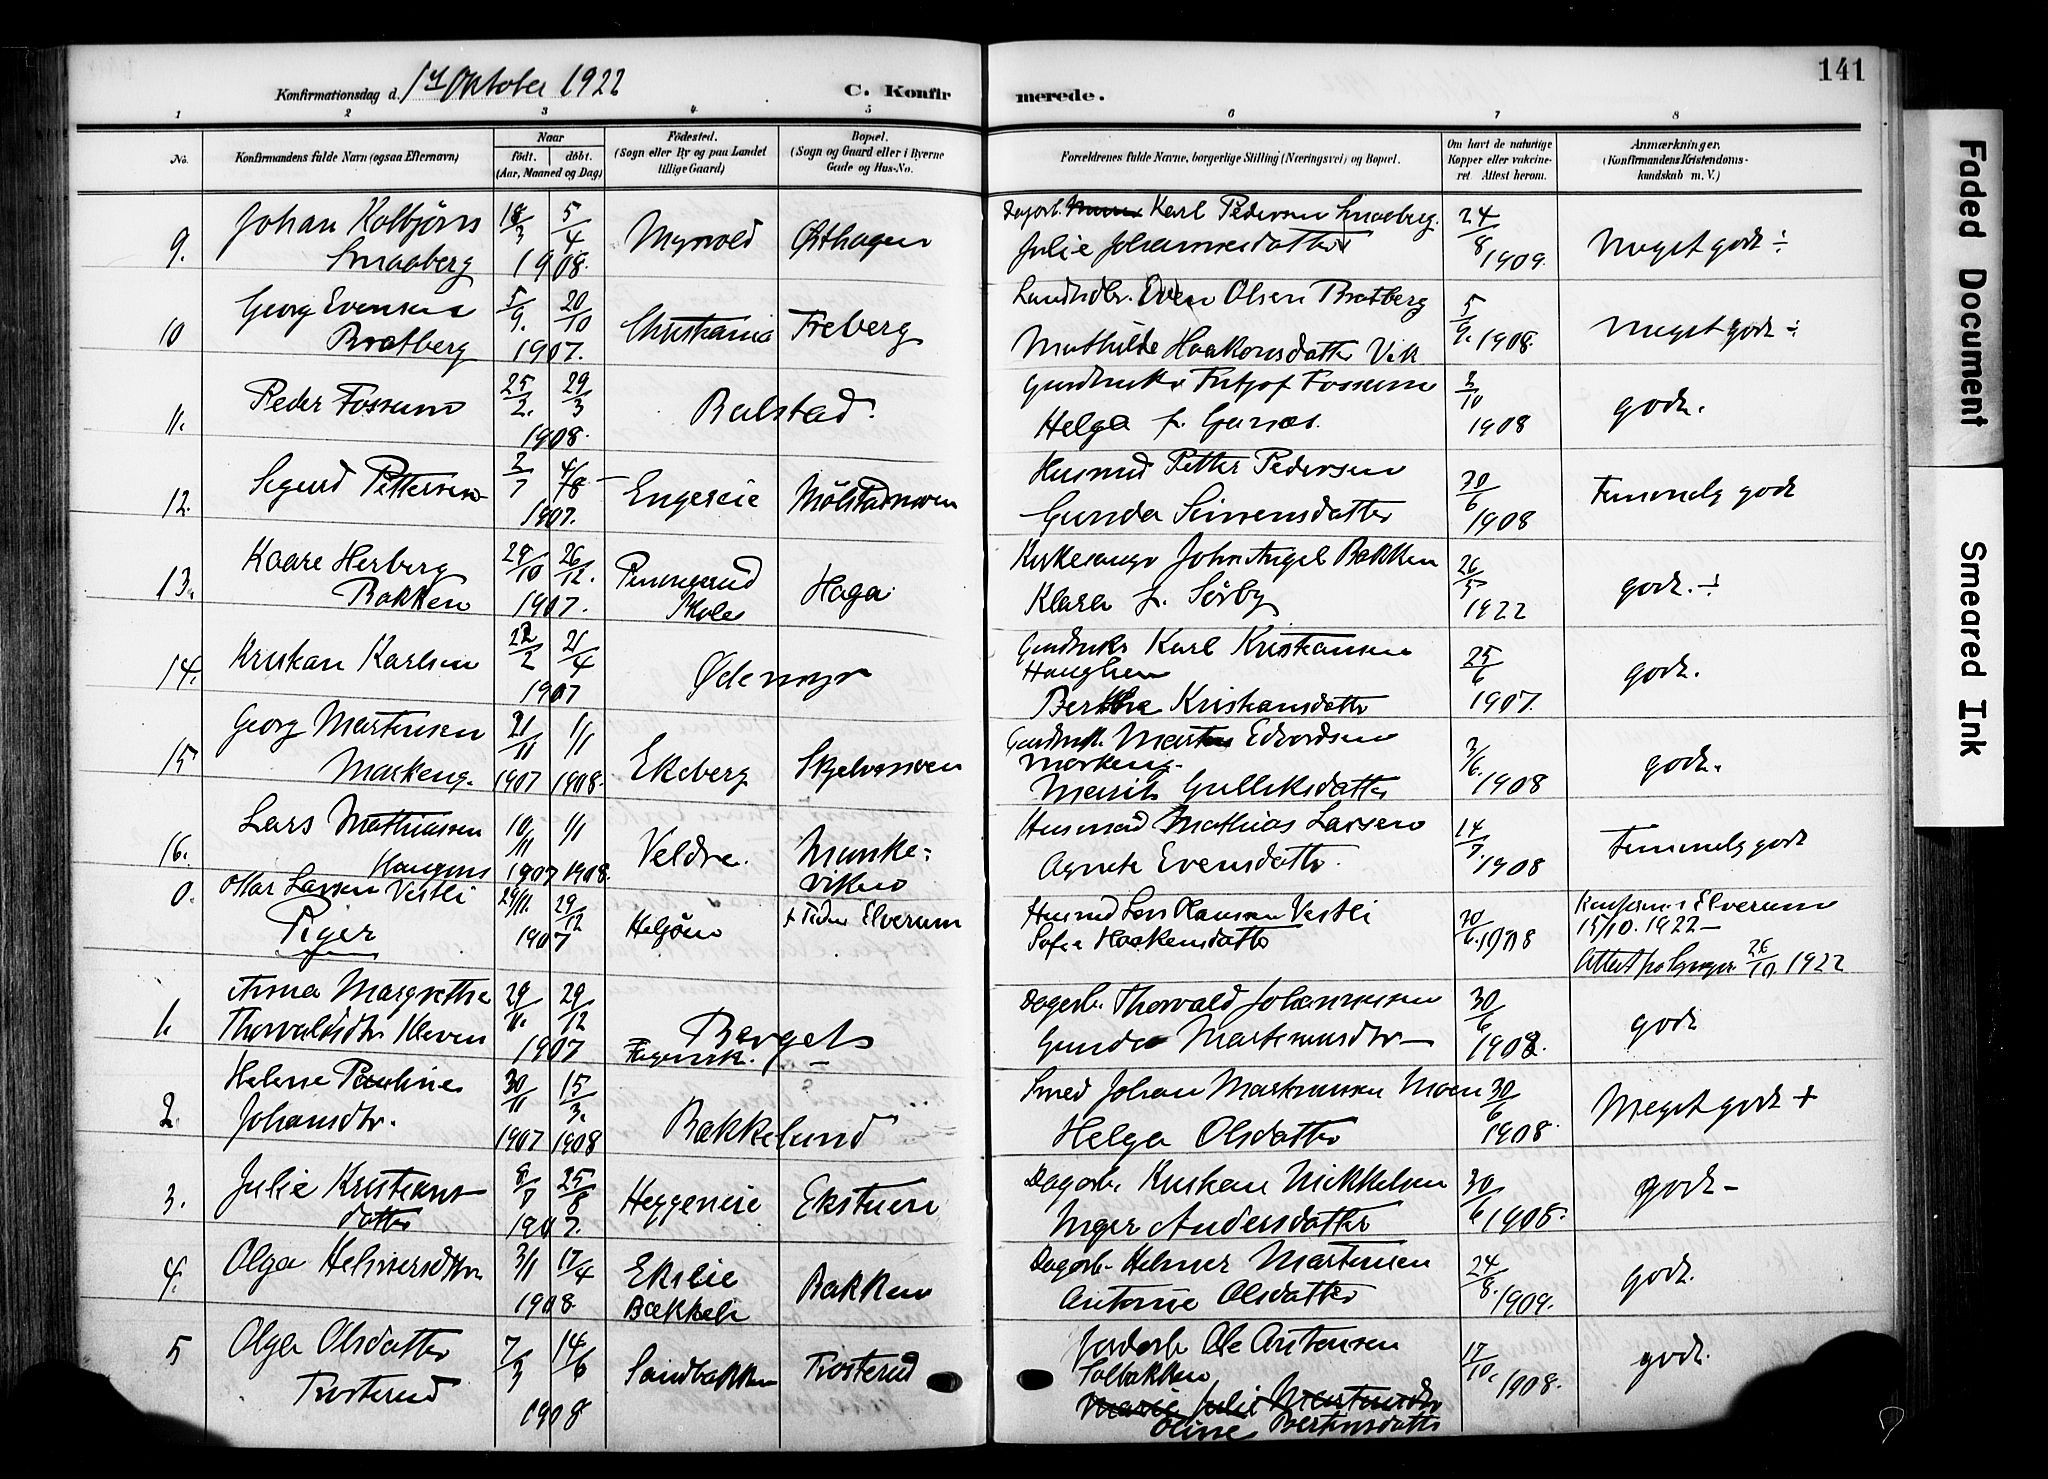 Konfirmationsdag d. 1st Oktober 1922
C. Konfirmerede.
141
1 2 3 4 5 6 7 8
No.
Konfirmandens fulde Navn (ogsaa Efternavn)
Naar
født. døbt.
(Aar, Maaned og Dag)
Fødested.
(Sogn eller By og paa Landet
tillige Gaard)
Bopæl.
(Sogn og Gaard eller i Byerne
Gade og Hus-No.
Forældrenes fulde Navne, borgerlige Stilling (Næringsvei) og Bopæl.
Om havt de naturlige
Kopper eller vaccine-
ret Attest herom.
Anmærkninger.
(Konfirmandens Kristendoms-
kundskab m. V.)
9. Johan Kolbjørn 18/3 5/4 Myrvold Østhagen Dagarb. Karl Pedersen Smaaberg. 24/8
Smaaberg 1908. Julie Johannesdatter 1909. Meget godt ÷
10 Georg Evensen 5/9. 20/10 Christiania Freberg Landhdlr. Even Olsen Bratberg 5/9.
Bratberg 1907. Mathilde Haakonsdatter Vik 1908. Meget godt ÷
11. Peder Fossum 25/2. 29/3 Balstad. Gardbruker Fritjof Fossum 3/10
1908. Helga f. Garnæs. 1908 godt.
12. Sigurd Pettersen 2/7 4/8 Engeseie Mølstadmoen Husmd Petter Pedersen 30/6
1907. Gunda Simensdatter 1908 Temmelig godt
13. Kaare Herberg 29/10 26/12. Haga Kirkesanger John Angel Bakken 26/5
Bakken 1907. Skole Klara f. Sørby 1922 godt. ÷
14. Kristian Karlsen 22/2 21/4 Ødemyr Gardbruker Karl Kristiansen 25/6
Haughen
1907 Berthe Kristiansdatter 1907. godt.
15 Georg Martinsen 21/11 1/1 Ekeberg Skjelvesmoen Gardbruk. Martin Edvardsen 3/6.
Markeng. 1907 1908. Markeng.
Marit Gulliksdatter 1908 godt.
16. Lars Mathiassen 10/11 1/1 Veldre. Munke-
Haugens 1907 1908. viken Husmad Mathias Larsen 14/7.
Agnete Evensdatter. 1908 Temmelig godt
0. Ottar Larsen Vestli 29/11. 29/12 Heljøen + Tiden Elverum Husmd Lars Hansen Vestli 30/6. 1908 Konfirm. i Elverum
1907 Sofie Haakensdatter 15/10. 1922 –
Piger Attest fra 26/10. 1922
1. Anna Margrethe 29/11. 29/12 Berget Dagarb. Thorvald Johannesen 30/6
Thorvaldsdtr Kleven 1907 Fagernk. Gunda Martinusdtr – 1908. godt
2. Helene Pauline 30/11 15/3. Bakkelund Smed Johan Martinusen Moen 30/6
Johansdtr. 1907 1908 Helga Olsdatter 1908. Meget godt +
3. Julie Kristians- 8/7 25/8 Heggeneie Ekstuen Dagarb. Kristian Mikkelsen 30/6
datter 1907. Inger Andersdatter 1908. godt –
4. Olga Helmersdtr 3/1 17/4 Ekseie Bakken Dagarb. Helmer Martinsen 24/8.
1908. Bækkeli Antonie Olsdatter 1909. godt.
5 Olga Olsdatter 7/3 14/6 Sandbakken Trosterud Jordarb. Ole Antonsen 17/10.
Trosterud Solbakken
1908 Marie Julie Martinsdtr 1908. godt.
Oline Bertinusdatter
Faded Document
Smeared Ink